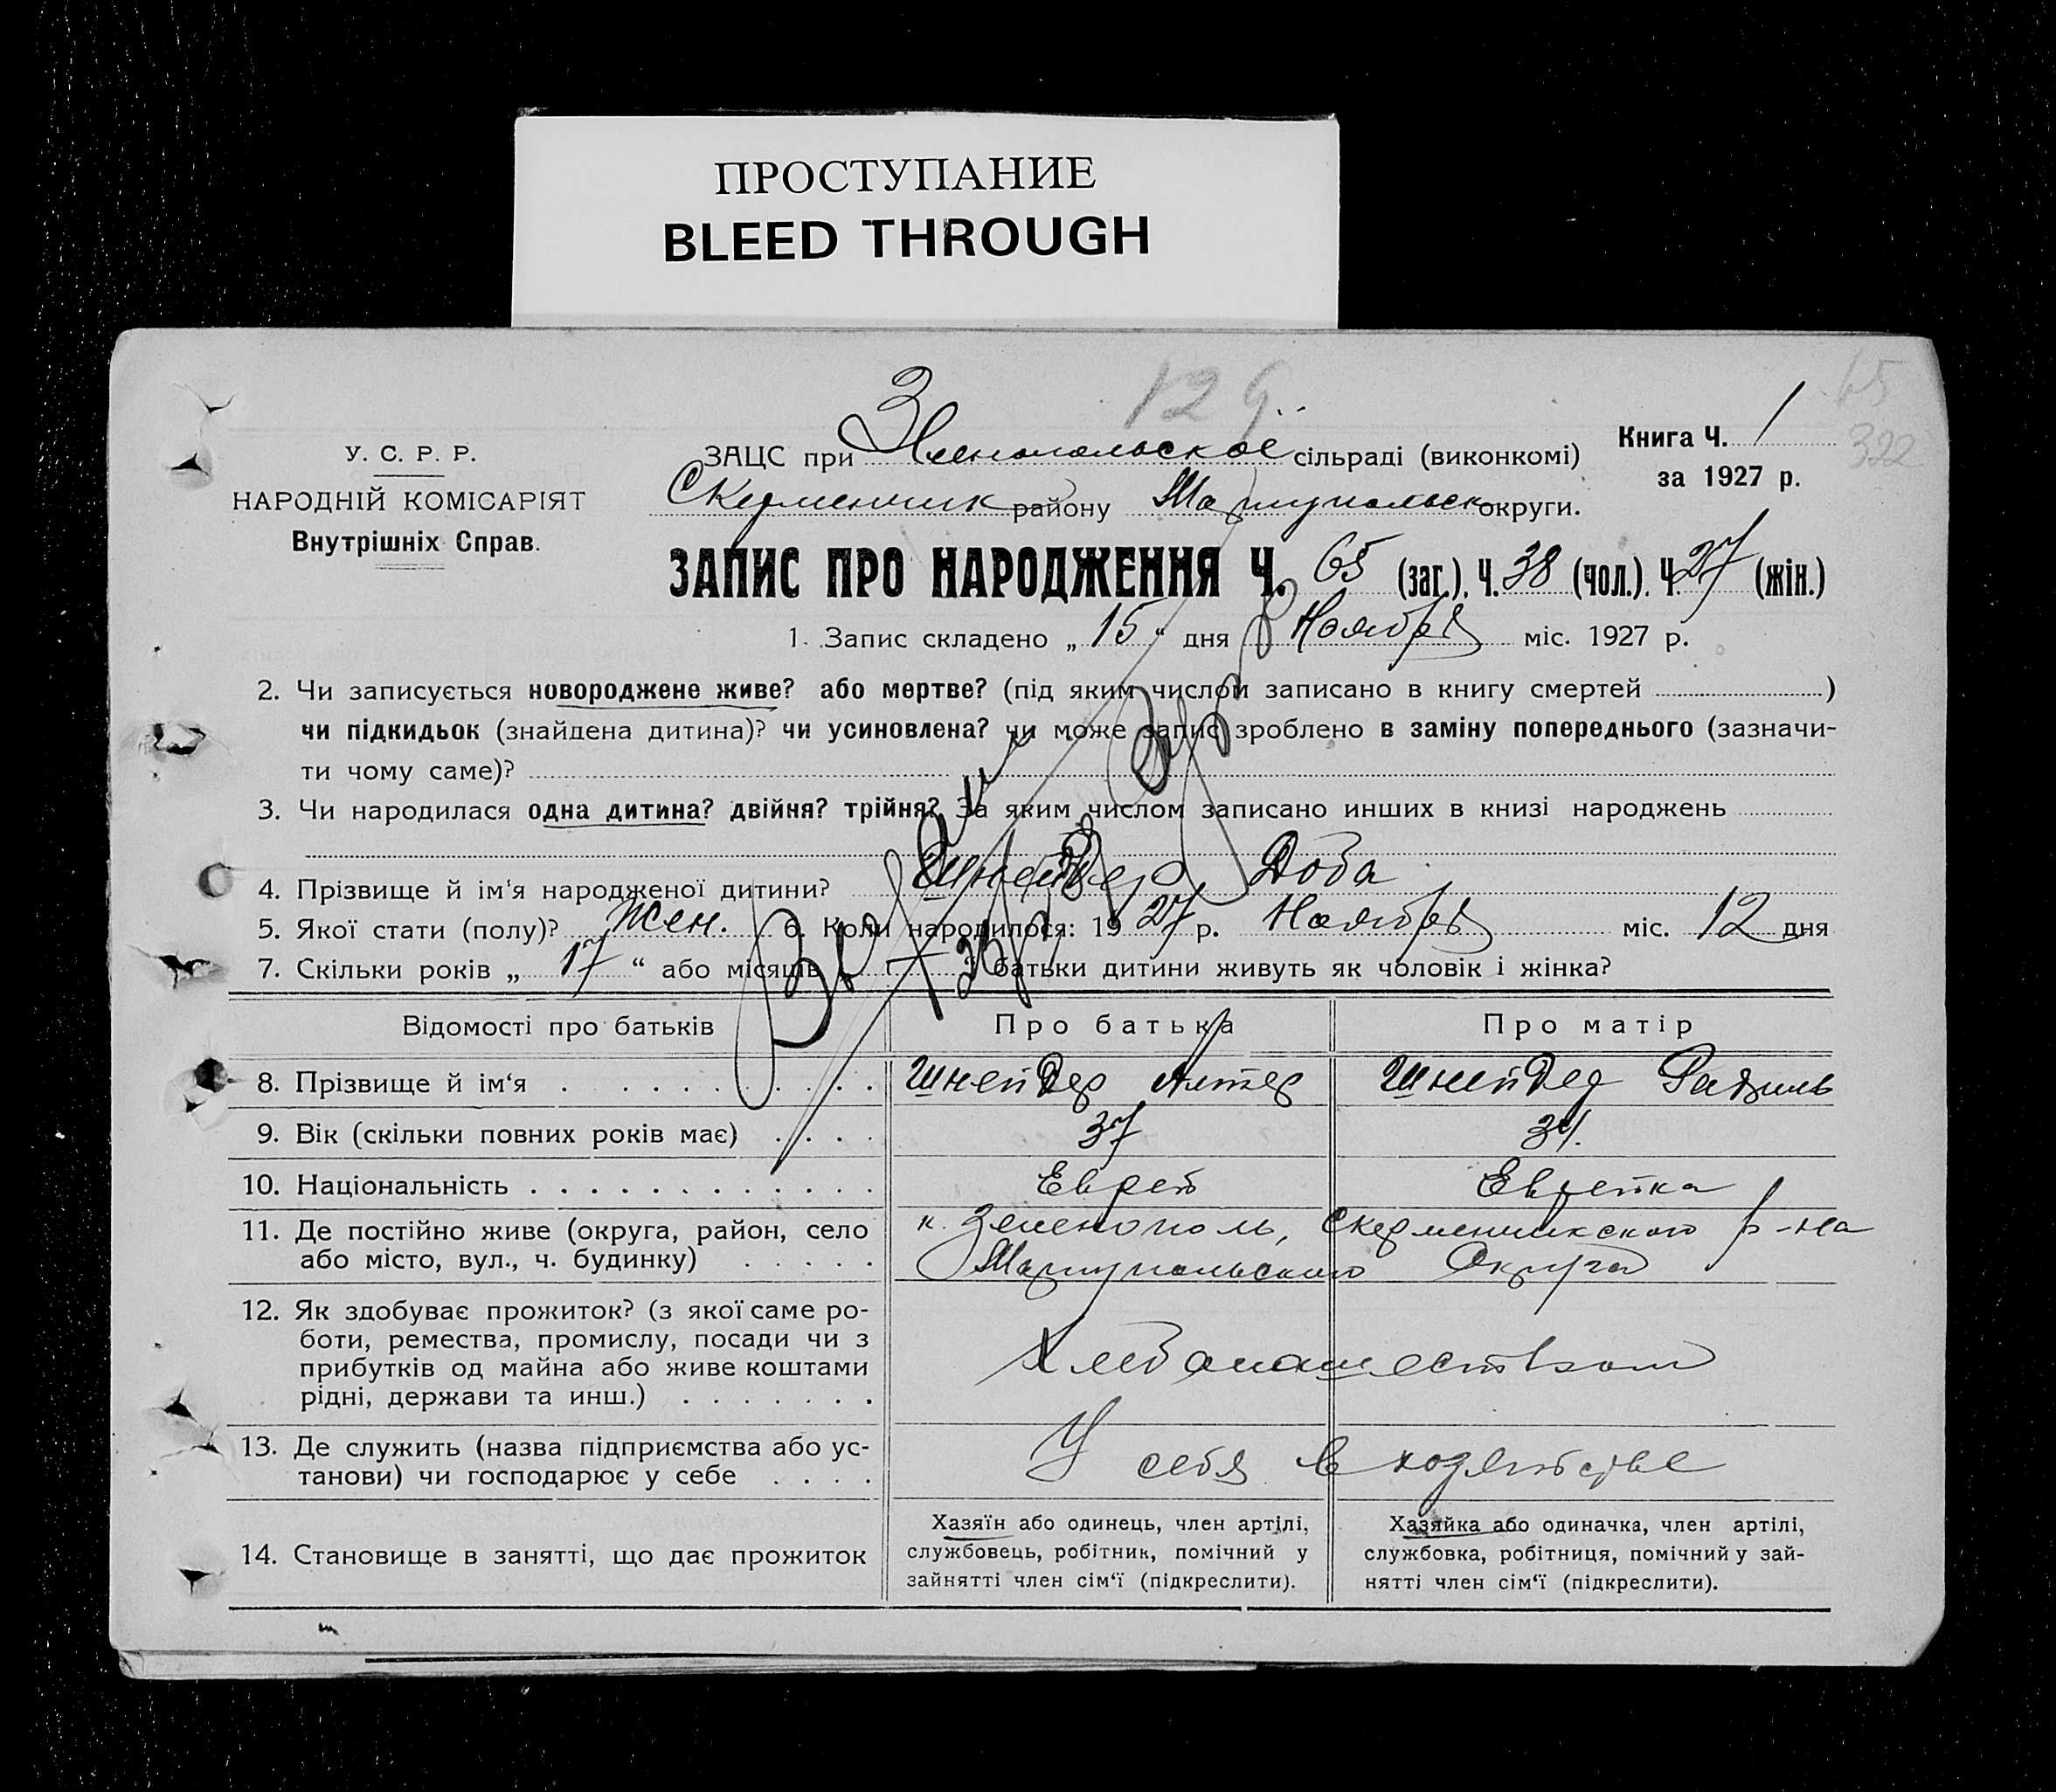 ПРОСТУПАНИЕ
BLEED THROUGH
129
65
322
У. С. Р. Р.
НАРОДНІЙ КОМІСАРІЯТ
Внутрішніх Справ.
ЗАЦС при Зеленопольское сільраді (виконкомі)
Керменчик району Мариупольск округи.
Книга Ч. 1
за 1927 р.
ЗАПИС ПРО НАРОДЖЕННЯ Ч. 65 (заг.). Ч. 38 (чол.). Ч. 27 (жін.)
1. Запис складено „ 15 “ дня Ноября міс. 1927 р.
2. Чи записується новороджене живе? або мертве? (під яким числом записано в книгу смертей )
чи підкидьок (знайдена дитина)? чи усиновлена? чи може запис зроблено в заміну попереднього (зазначи-
ти чому саме)?
3. Чи народилася одна дитина? двійня? трійня? За яким числом записано инших в книзі народжень
4. Прізвище й ім'я народженої дитини? Шнейдер Доба
5. Якої стати (полу)? Жен. 6. Коли народилося: 19 27 р. Ноября міс. 12 дня
7. Скільки років „ 17 “ або місяців батьки дитини живуть як чоловік і жінка?
Відомості про батьків Про батька Про матір
8. Прізвище й ім‘я Шнейдер Алтер Шнейдер
9. Вік (скільки повних років має) 37 34.
10. Національність Еврей Еврейка
11. Де постійно живе (округа, район, село к. Зеленополь, Скерменчикского р-на
або місто, вул., ч. будинку) Мариупольского Округа
12. Як здобуває прожиток? (з якої саме ро-
боти, ремества, промислу, посади чи з
прибутків од майна або живе коштами Хлебопашеством
рідні, держави та инш.)
13. Де служить (назва підприємства або ус-
танови) чи господарює у себе У себя в хозяйстве
14. Становище в занятті, що дає прожиток
Хазяїн або одинець, член артілі,
службовець, робітник, помічний у
зайнятті член сім‘ї (підкреслити).
Хазяйка або одиначка, член артілі,
службовка, робітниця, помічний у зай-
нятті член сім‘ї (підкреслити).